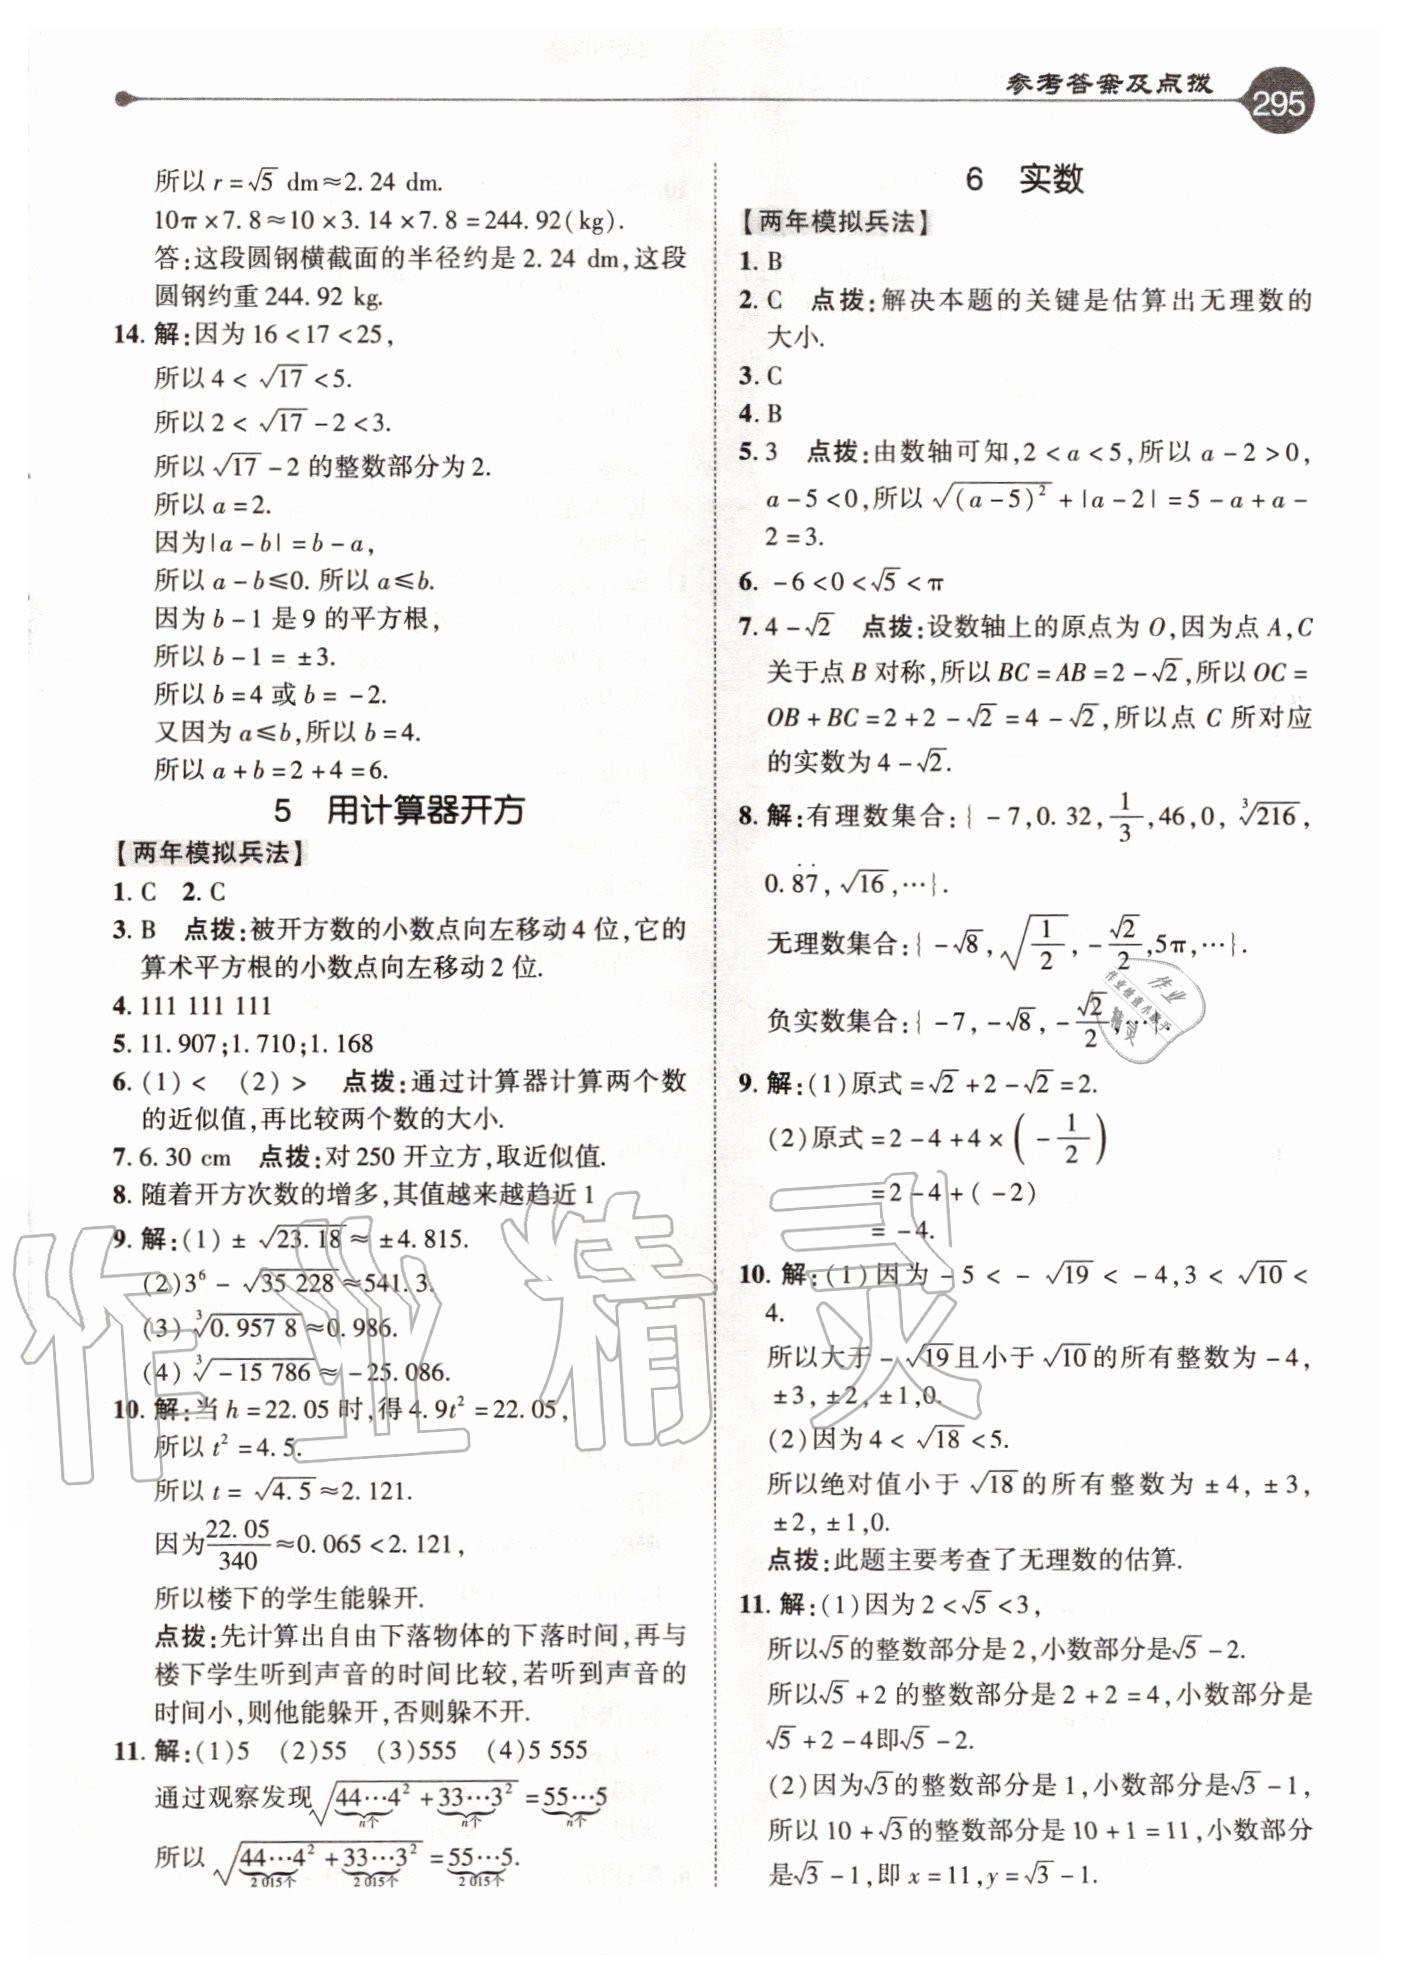 参考答案及点拨 295
所以 r = √5 dm ≈ 2. 24 dm.
10π × 7. 8 ≈ 10 × 3. 14 × 7. 8 = 244. 92(kg).
答:这段圆钢横截面的半径约是 2. 24 dm,这段
圆钢约重 244. 92 kg.
14. 解:因为 16 < 17 < 25,
所以 4 < √17 < 5.
所以 2 < √17 - 2 < 3.
所以 √17 - 2 的整数部分为 2.
所以 a = 2.
因为|a - b| = b - a,
所以 a - b ≤ 0. 所以 a ≤ b.
因为 b - 1 是 9 的平方根,
所以 b - 1 = ±3.
所以 b = 4 或 b = -2.
又因为 a ≤ b,所以 b = 4.
所以 a + b = 2 + 4 = 6.
5 用计算器开方
【两年模拟兵法】
1. C 2. C
3. B 点拨:被开方数的小数点向左移动 4 位,它的
算术平方根的小数点向左移动 2 位.
4. 111 111 111
5. 11. 907;1. 710;1. 168
6. (1) < (2) > 点拨:通过计算器计算两个数
的近似值,再比较两个数的大小.
7. 6. 30 cm 点拨:对 250 开立方,取近似值.
8. 随着开方次数的增多,其值越来越趋近 1
9. 解:(1) ± √23. 18 ≈ ±4. 815.
(2)3⁶ - √35 228 ≈ 541. 3.
(3) ³√0. 957 8 ≈ 0. 986.
(4) ³√-15 786 ≈ -25. 086.
10. 解:当 h = 22. 05 时,得 4. 9t² = 22. 05,
所以 t² = 4. 5.
所以 t = √4. 5 ≈ 2. 121.
因为 22. 05/340 ≈ 0. 065 < 2. 121,
所以楼下的学生能躲开.
点拨:先计算出自由下落物体的下落时间,再与
楼下学生听到声音的时间比较,若听到声音的
时间小,则他能躲开,否则躲不开.
11. 解:(1)5 (2)55 (3)555 (4)5 555
通过观察发现 √(44…4² + 33…3²) = 55…5
n个 n个 n个
所以 √(44…4² + 33…3²) = 55…5.
2 015个 2 015个 2 015个
6 实数
【两年模拟兵法】
1. B
2. C 点拨:解决本题的关键是估算出无理数的
大小.
3. C
4. B
5. 3 点拨:由数轴可知,2 < a < 5,所以 a - 2 > 0,
a - 5 < 0,所以 √(a - 5)² + |a - 2| = 5 - a + a -
2 = 3.
6. -6 < 0 < √5 < π
7. 4 - √2 点拨:设数轴上的原点为 O,因为点 A,C
关于点 B 对称,所以 BC = AB = 2 - √2,所以 OC =
OB + BC = 2 + 2 - √2 = 4 - √2,所以点 C 所对应
的实数为 4 - √2.
8. 解:有理数集合:{ -7,0. 32, 1/3 ,46,0, ³√216,
0. 8̇7̇, √16,…}.
无理数集合:{ -√8, √(1/2), -√2/2,5π,…}.
负实数集合:{ -7, -√8, -√2/2,…}.
9. 解:(1)原式 = √2 + 2 - √2 = 2.
(2)原式 = 2 - 4 + 4 × ( -1/2 )
= 2 - 4 + ( -2)
= -4.
10. 解:(1)因为 -5 < -√19 < -4,3 < √10 <
4.
所以大于 -√19 且小于 √10 的所有整数为 -4,
±3, ±2, ±1,0.
(2)因为 4 < √18 < 5.
所以绝对值小于 √18 的所有整数为 ±4, ±3,
±2, ±1,0.
点拨:此题主要考查了无理数的估算.
11. 解:(1)因为 2 < √5 < 3,
所以√5的整数部分是 2,小数部分是√5 - 2.
所以√5 + 2 的整数部分是 2 + 2 = 4,小数部分是
√5 + 2 - 4 即√5 - 2.
(2)因为√3的整数部分是 1,小数部分是√3 - 1,
所以 10 + √3的整数部分是 10 + 1 = 11,小数部分
是√3 - 1,即 x = 11,y = √3 - 1.
作业精灵
作业
作业检查小帮手
精灵